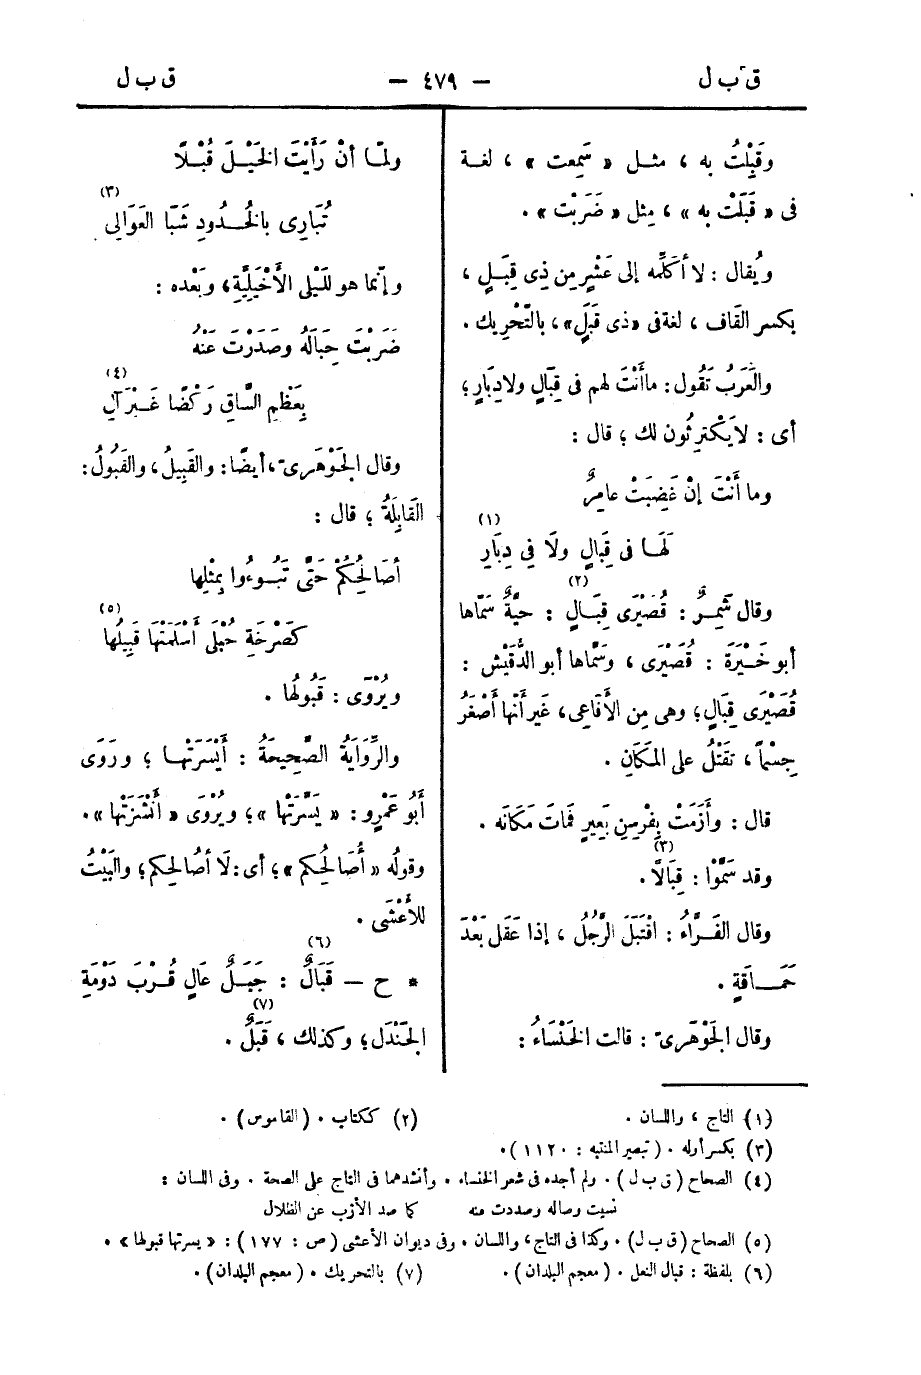 ق ب ل — ٤٧٩ — ق ب ل
وقَبِلْتُ به ، مثـل « سَمِعت » ، لغـة
فى « قَبَلَتْ به » ، مِثل « ضَرَبْت » .
ويُقال : لا أكلِّمه إلى عَشْرٍ مِن ذِى قِبَـلٍ ،
بكسر القاف ، لغة فى «ذى قَبَلٍ» ، بالتّحْرِيك .
والعَرَبُ تَقُول : ماأَنْتَ لهم فى قِبَالٍ ولادِبَارٍ ؛
أى : لايَكْترِثُون لك ؛ قال :
وما أَنْتَ إنْ غَضِبَتْ عامِرٌ
لَهَـا فى قِبَالٍ ولَا فِى دِبَارِ (١)
وقال شَمِـرٌ : قُصَيْرَى قِبَـالٍ (٢) : حيَّةٌ سَمّاها
أبو خَـيْرَةَ : قُصَيْرَى ، وسَمّاها أبو الدُّقَيْش :
قُصَيْرَى قِبَالٍ ؛ وهى مِن الأَفَاعِى ، غَير أنّها أَصْغَرُ
جِسْماً ، تَقْتُلُ على المَكَانِ .
قال : وأَزَمَتْ بِفْرسِنِ بَعِيرٍ فَمَاتَ مَكَانَه .
وقد سَمَّوْا : قِبَالًا (٣) .
وقال الفَـرَّاءُ : اقْتَبَلَ الرَّجُلُ ، إذا عَقَل بَعْدَ
حَمَـاقَةٍ .
وقال الجَوْهَرِىّ : قالت الخَنْسَاءُ :
ولمّـا أنْ رَأَيْتَ الخَيْـلَ قُبْـلًا
تُبَارِى بالخُـدُودِ شَبَا العَوَالِى (٣)
وإنّما هو للَيْلى الأَخْيَلِيَّةِ ، وبَعْده :
ضَرَبْتَ حِبَالَهُ وصَدَرْتَ عَنْهُ
بِعَظْمِ السَّاقِ رَكْضًا غَـيْرَ آلِ (٤)
وقال الجَوْهَرِىّ ، أيضًا : والقَبِيلُ ، والقَبُولُ :
القَابِلَةُ ؛ قال :
أُصَالِحُكُمْ حَتَّى تَبُـوءُوا بِمْثلِها
كَصَرْخَةِ حُبْلَى أَسْلَمَتْهَا قَبِيلُها (٥)
ويُرْوَى : قَبُولُها .
والرِّوَايَةُ الصَّحِيحَةُ : أَيْسَرَتْهـا ؛ ورَوَى
أَبُو عَمْرٍو : « يَسَّرَتْها » ؛ ويُرْوَى « أَنْشَزَتْها » .
وقولُه « أُصَالِحُكم » ؛ أى : لَا أُصَالِحُكم ؛ والبَيْتُ
للأَعْشَى .
* ح — قَبَالٌ (٦) : جَبَـلٌ عَالٍ قُـرْبَ دَوْمَةِ
الجَنْدَل ؛ وكذلك ، قَبَلٌ (٧) .
(١) التاج ، واللسان . (٢) ككتاب . (القاموس) .
(٣) بكسر أوله . (تبصير المنتبه : ١١٢٠) .
(٤) الصحاح (ق ب ل) . ولم أجده فى شعر الخنساء . وأنشدهما فى التاج على الصحة . وفى اللسان :
نسيت وصاله وصددت عنه كما صد الأزب عن الظلال
(٥) الصحاح (ق ب ل) . وكذا فى التاج ، واللسان . وفى ديوان الأعشى (ص : ١٧٧) : « يسرتها قبولها » .
(٦) بلفظة : قبال النعل . (معجم البلدان) . (٧) بالتحريك . (معجم البلدان) .